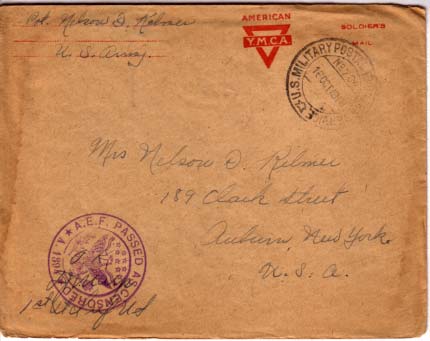 Nelson D. Kelmer
U. S. Army
AMERICAN
Y.M.C.A.
SOLDIER'S
MAIL
U.S. MILITARY POST
Mrs Nelson D. Kelmer
189 Clark Street
Auburn, New York
U. S. A.
A.E.F. PASSED AS CENSORED
1st